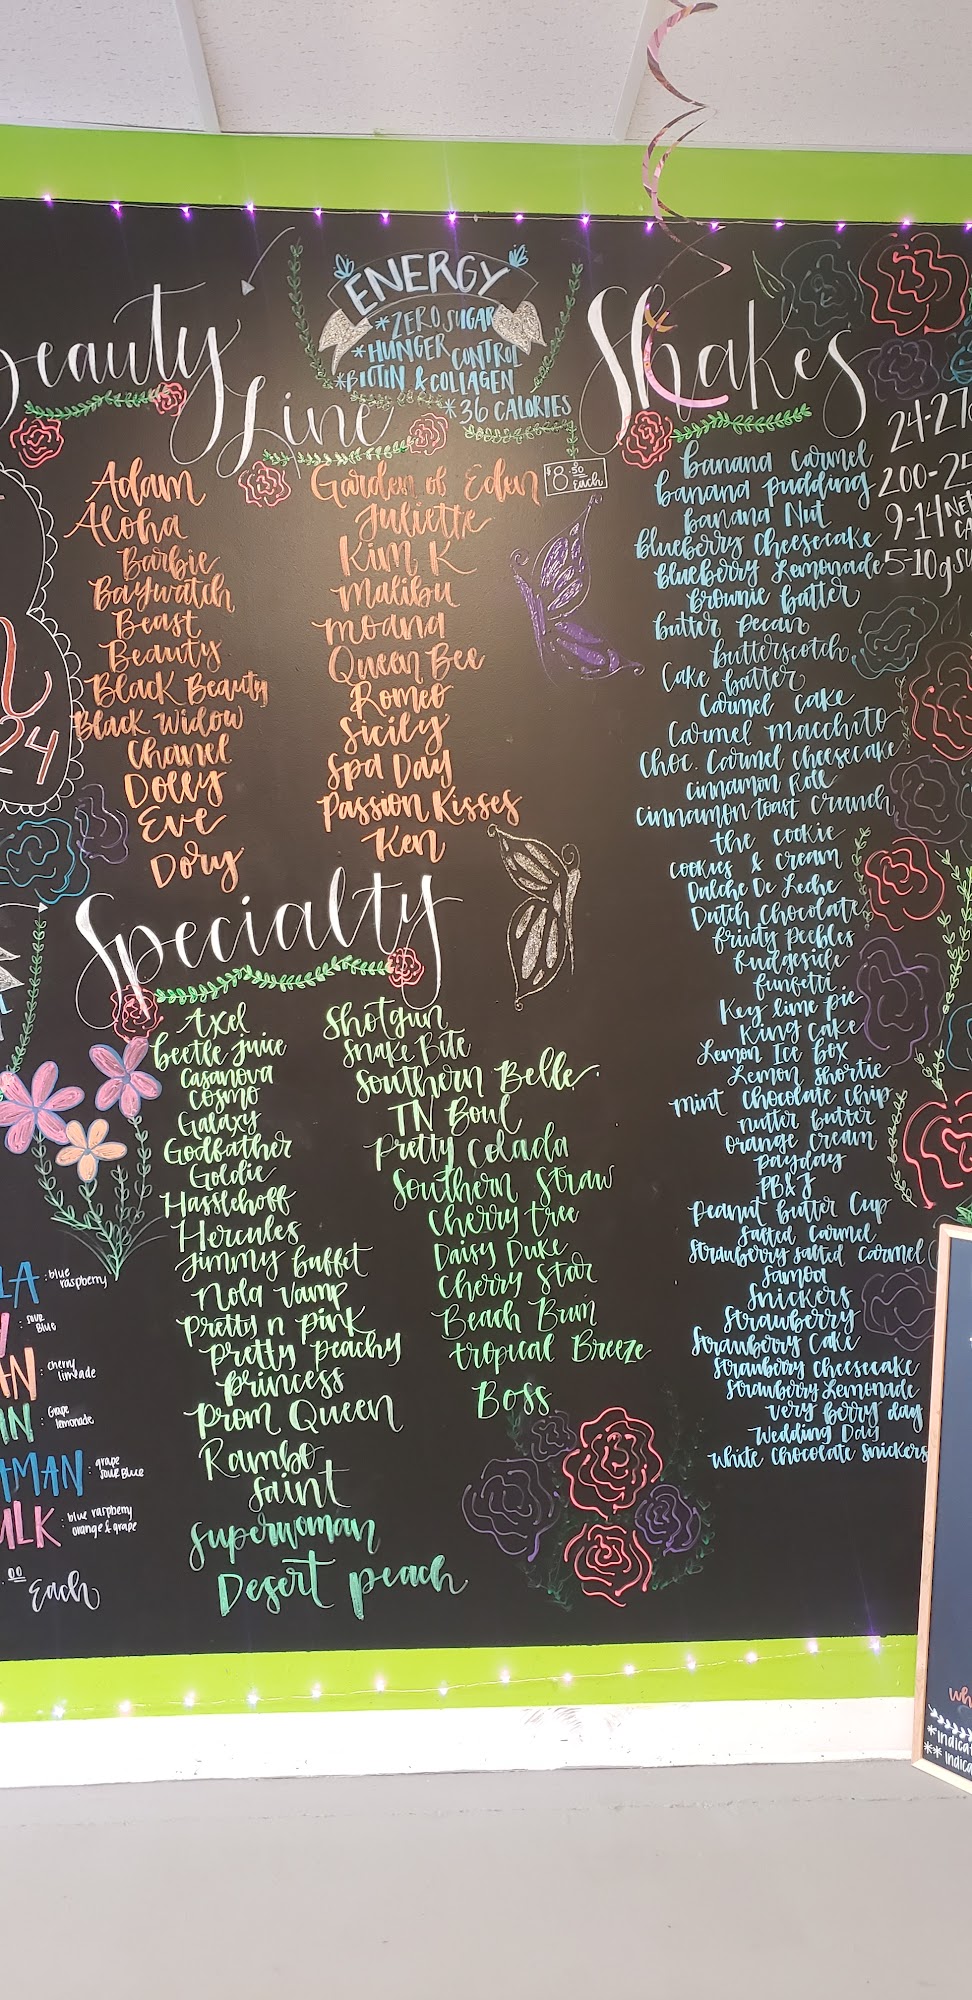 Beauty Line
ENERGY
*ZERO SUGAR
*HUNGER CONTROL
*BIOTIN & COLLAGEN
*36 CALORIES
$8.50 Each
Adam
Aloha
Barbie
Baywatch
Beast
Beauty
Black Beauty
Black Widow
Chanel
Dolly
Eve
Dory
Garden of Eden
Juliette
Kim K
Malibu
Moana
Queen Bee
Romeo
Sicily
Spa Day
Passion Kisses
Ken
Specialty
Axel
Beetle Juice
Casanova
Cosmo
Galaxy
Godfather
Goldie
Hasslehoff
Hercules
Jimmy Buffet
Nola Vamp
Pretty n Pink
Pretty Peachy
Princess
Prom Queen
Rambo
Saint
Superwoman
Desert Peach
Shotgun
Snake Bite
Southern Belle
TN Boul
Pretty Colada
Southern Straw
Cherry tree
Daisy Duke
Cherry Star
Beach Bum
tropical Breeze
Boss
Shakes
24-27
200-25
9-14 NE
5-10g SU
banana Carmel
banana pudding
banana Nut
blueberry Cheesecake
blueberry Lemonade
brownie batter
butter pecan
butterscotch
Cake batter
Carmel Cake
Carmel Macchito
Choc. Carmel Cheesecake
Cinnamon Roll
Cinnamon toast Crunch
the Cookie
Cookies & Cream
Dulche De Leche
Dutch Chocolate
fruity peebles
fudgesicle
funfetti
Key lime pie
King Cake
Lemon Ice box
Lemon Shortie
Mint Chocolate Chip
Nutter butter
Orange Cream
Payday
PB&J
Peanut butter Cup
Salted Carmel
Strawberry Salted Carmel
Samoa
Snickers
Strawberry
Strawberry Cake
Strawberry Cheesecake
Strawberry Lemonade
Very berry day
Wedding Day
White Chocolate Snickers
24
LA : blue raspberry
: sour Blue
AN : cherry limeade
AN : Grape lemonade
AMAN : grape sour Blue
ULK : blue raspberry orange & grape
.00 Each
Wh
*indicat
** indica